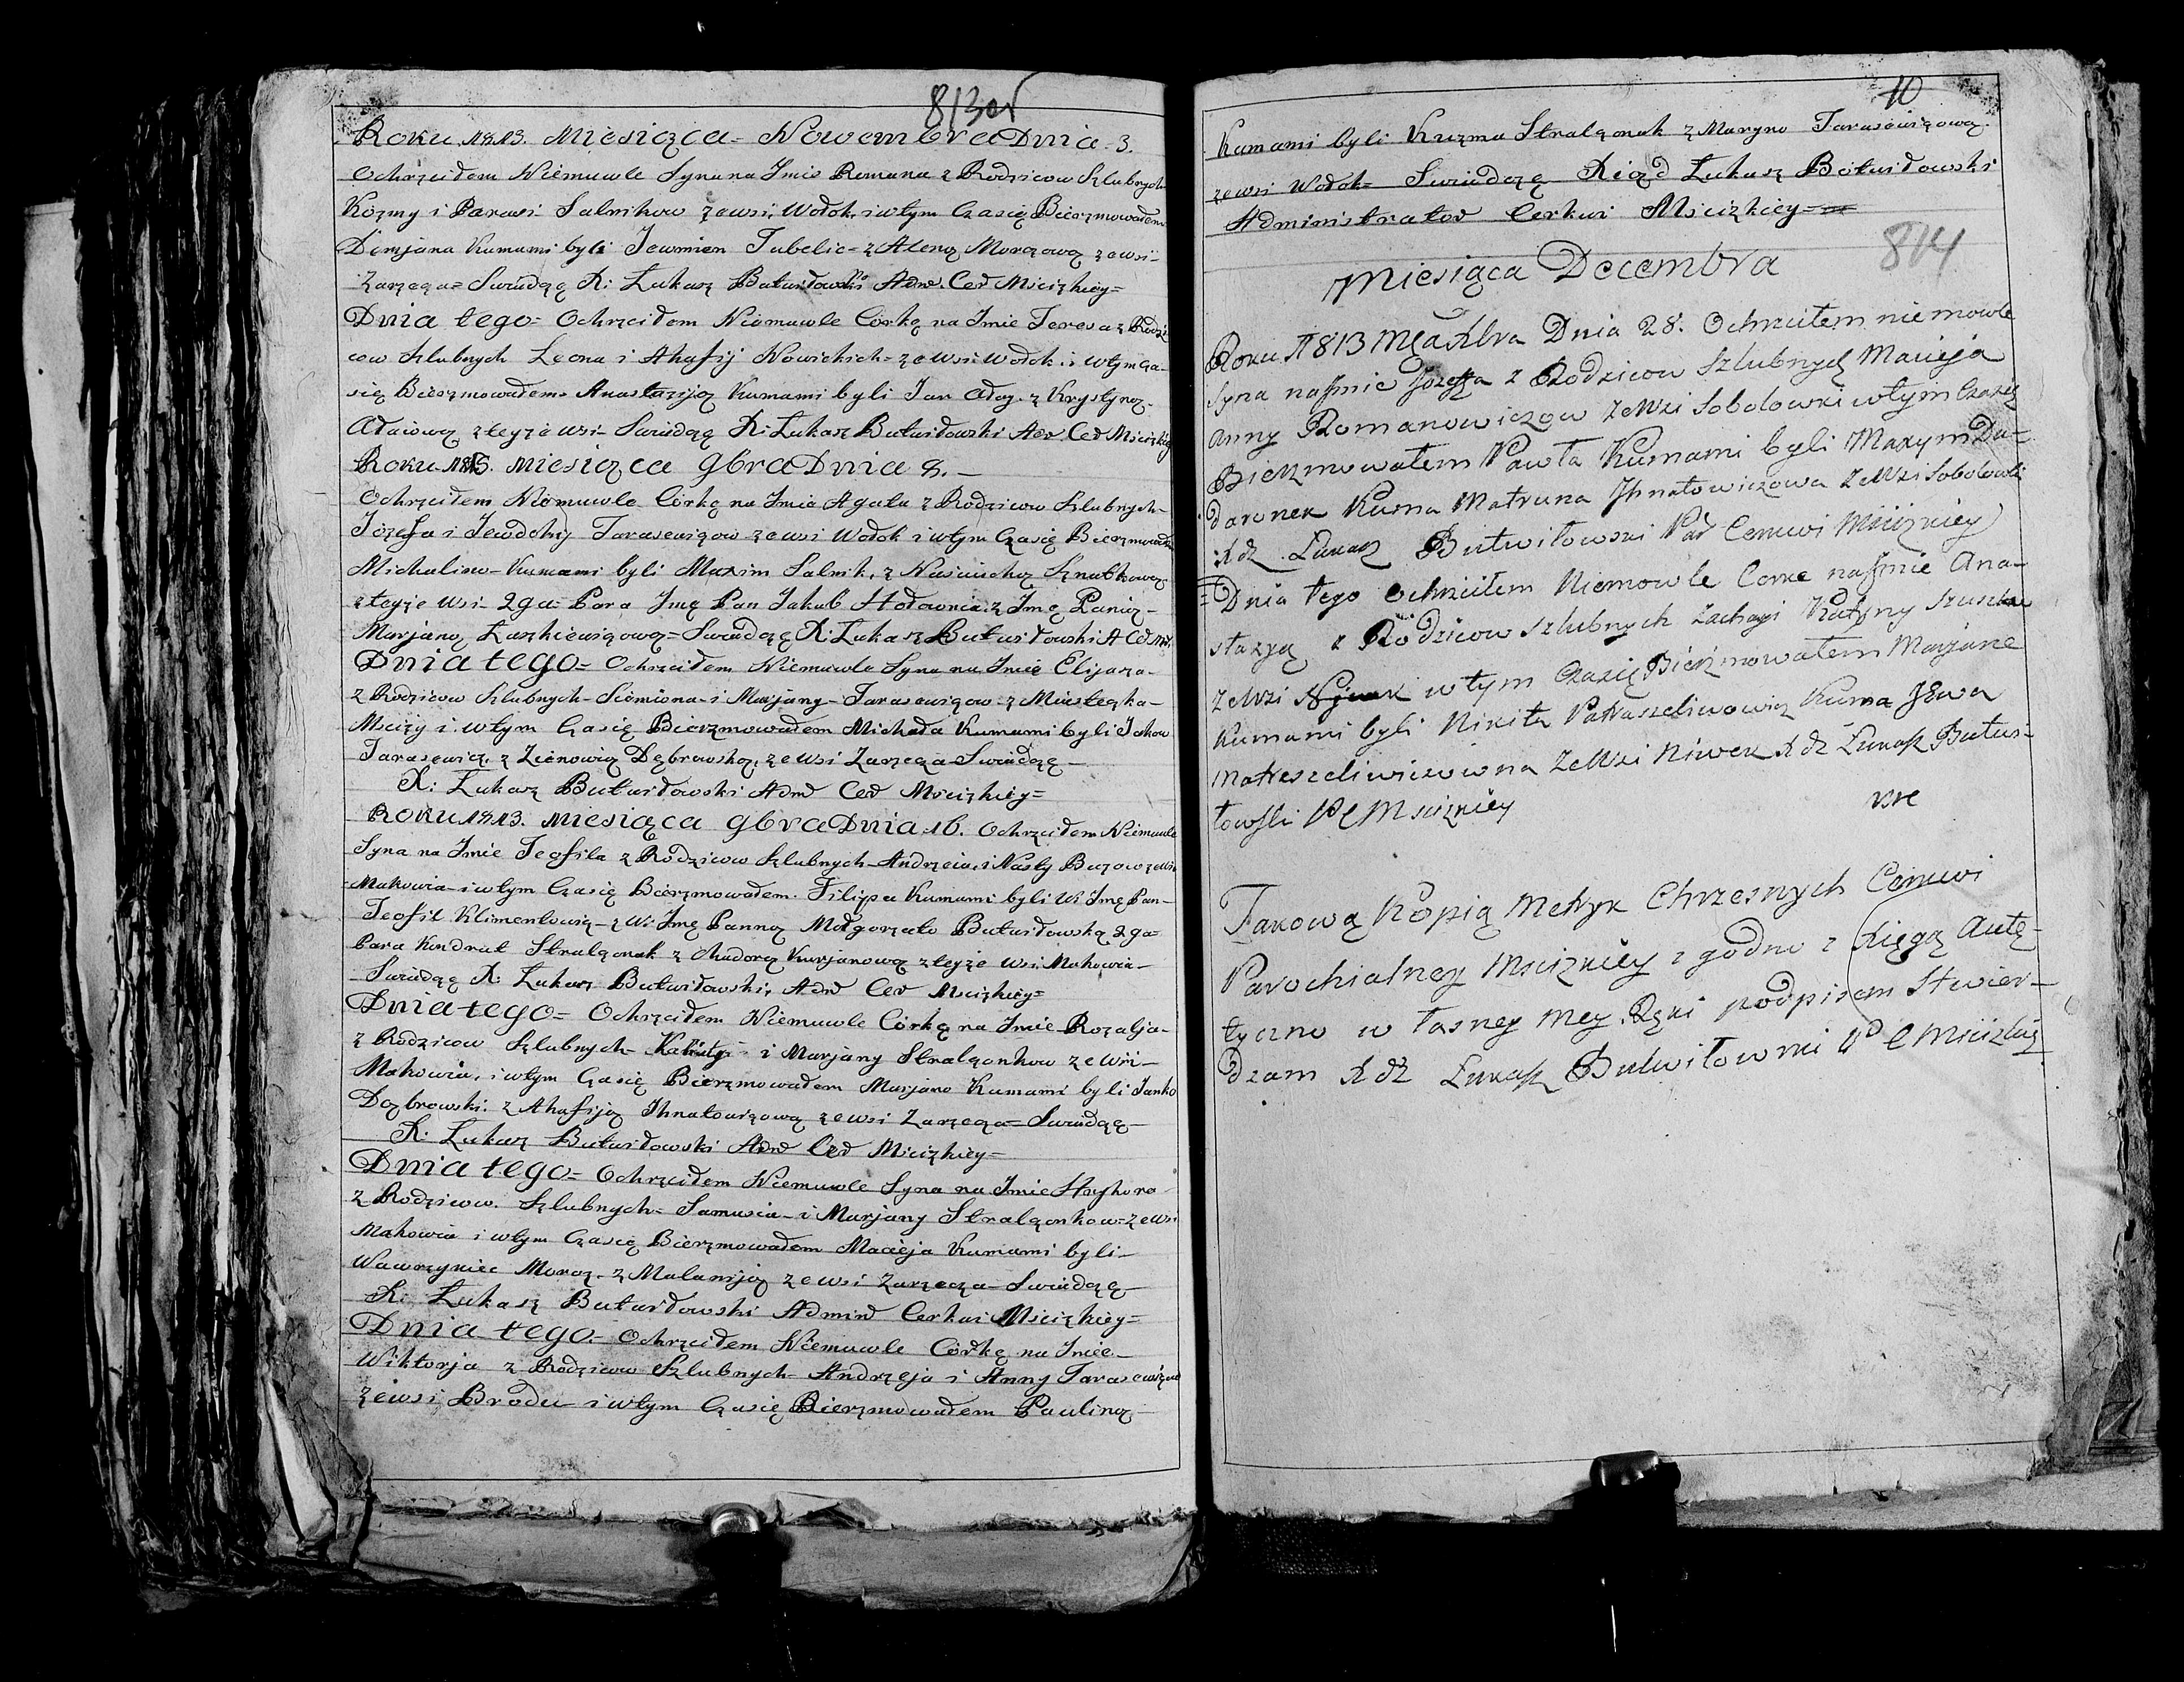 813or
Roku 1813. Miesiąca = Nowembra Dnia 3.
Ochrzciłem Niemuwle Syna na Jmie Romana z Rodzicow Szlubnych
Kozmy i Parasi Salnikow ze wsi Wołok, i w tym Czasię Bierzmowałem
Dimjana Kumami byli Jewmien Tubelic = z Aleną Morozową ze wsi
Zarzecza = Swiadczę X: Łukasz Butwiłowski Adm. Cer Mscizkiey =
Dnia tego = Ochrzciłem Niemuwle Corkę na Jmie Teresa z Rodzi
cow Szlubnych Leona i Ahafij Nowickich = ze wsi Wołok i w tym Cza-
się Bierzmowałem Anastazijǫ Kumami byli Jan z Krystynǫ
z teyże wsi Swiadczę X: Łukasz Butwiłowski Adm Cer Mscizkiey
Roku 1813. Miesiąca 9bra Dnia 8. —
Ochrzciłem Niemuwle Corkę na Jmia Agata z Rodzicow Szlubnych
Jozefa i Jewdokij Tarasewiczow ze wsi Wołok i w tym Czasię Bierzmowałem
Michalinę Kumami byli Maxim Salnik, z Naściuchą
z teyże wsi 2ga Para Jmę Pan Jakub Hołownia z Jmę Panią
Marjaną Łaszkiewiczową = Swiadczę X: Łukasz Butwiłowski A Cer M.
Dnia tego = Ochrzciłem Niemuwle Syna na Jmie Elijasza
z Rodzicow Szlubnych Siemiona i Marjany Tarasewiczow z Miasteczka
Mscizy i w tym Czasię Bierzmowałem Michała Kumami byli Jakow
Tarasewicz, z Zienowią Dąbrowską, ze wsi Zarzecza Swiadczę
X: Łukasz Butwiłowski Adm Cer Mscizkiey =
Roku 1813. Miesiąca 9bra Dnia 16. Ochrzciłem Niemuwle
Syna na Jmie Teofila z Rodzicow Szlubnych Andrzeia, i Nasty ze wsi
Makowia i w tym Czasię Bierzmowałem. Filipa Kumami byli W Jmę Pan
Teofil Klimentowicz z W Jmę Panną Małgorzato Butwiłowską 2ga =
Para Kondrat Stralczonak z Chadorą Kurjanową z teyże wsi Makowia
Swiadczę X. Łukasz Butwiłowski, Adm Cer Mscizkiey =
Dnia tego = Ochrzciłem Niemuwle Corkę na Jmie Rozalja
z Rodzicow Szlubnych i Marjany Stralczonkow ze wsi
Makowia, i w tym Czasię Bierzmowałem Marjano Kumami byli Janko
Dąbrowski z Ahafiją Jhnatowiczową ze wsi Zarzecza = Swiadczę
X: Łukasz Butwiłowski Adm Cer Mscizkiey =
Dnia tego = Ochrzciłem Niemuwle Syna na Jmie Hryhora
z Rodzicow Szlubnych = Samusia i Marjany Stralczonkow = ze wsi
Makowia i w tym Czasię Bierzmowałem Macieja Kumami byli
Wawrzyniec Moroz z Malaniją ze wsi Zarzecza Swiadczę
X: Łukasz Butwiłowski Admin Cerkwi Mscizkiey =
Dnia tego = Ochrzciłem Niemuwle Corkę na Jmie
Wiktorja z Rodzicow Szlubnych Andrzeja i Anny Tarasewiczow
ze wsi Brodu i w tym Czasię Bierzmowałem Pauliną
10
Kumami byli Kuzma Stralczonak z Maryno Tarasewiczową
ze wsi Wołok = Swiadczę Xiądz Łukasz Butwiłowski
Administrator Cerkwi Mscizkiey =
814
Miesiąca Decembra
Roku 1813 Mca Xbra Dnia 28. Ochrzciłem niemowle
Syna na Jmie Jozefa z Rodzicow Szlubnych Macieja
Anny Romanowiczow ze Wsi Sobolowki w tym Czasię
Bierzmowałem Pawła Kumami byli Maxym Du-
daronek Kuma Matruna Jhnatowiczowa ze Wsi Sobolowki
Xdz Łukasz Butwiłowski Par Cerkwi Mscizkiey
Dnia tego Ochrzciłem Niemowle Corke na Jmie Ana-
stazyą z Rodzicow Szlubnych Zacharyi Katyny
ze Wsi w tym Czasię Bierzmowałem Marjane
Kumami byli Nikita Kuma Jewa
ze Wsi Niwek Xdz Łukasz Butwi-
łowski P C Mscizkiey
Takową Kopią Metryk Chrzesnych Cerkwi
Parochialney Mscizkiey zgodno z Xięgą Autę-
tyczno własney mey Ręki podpisem Stwier-
dzam Xdz Łukasz Butwiłowski P C Mscizkiey